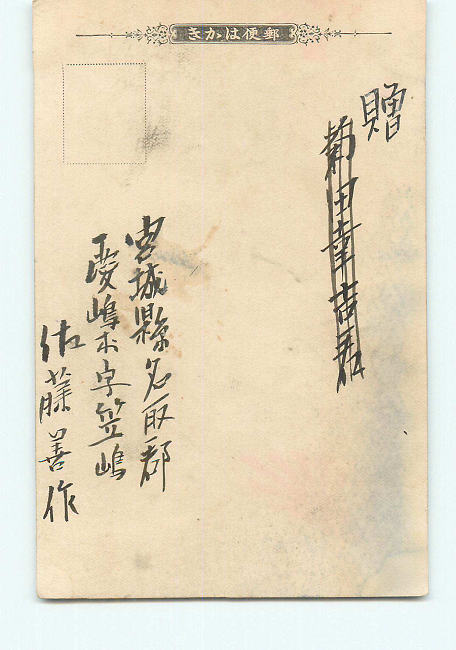 郵便はかき
贈
菊田幸吉君
宮城縣名取郡
愛嶋村字笠嶋
佐藤善作